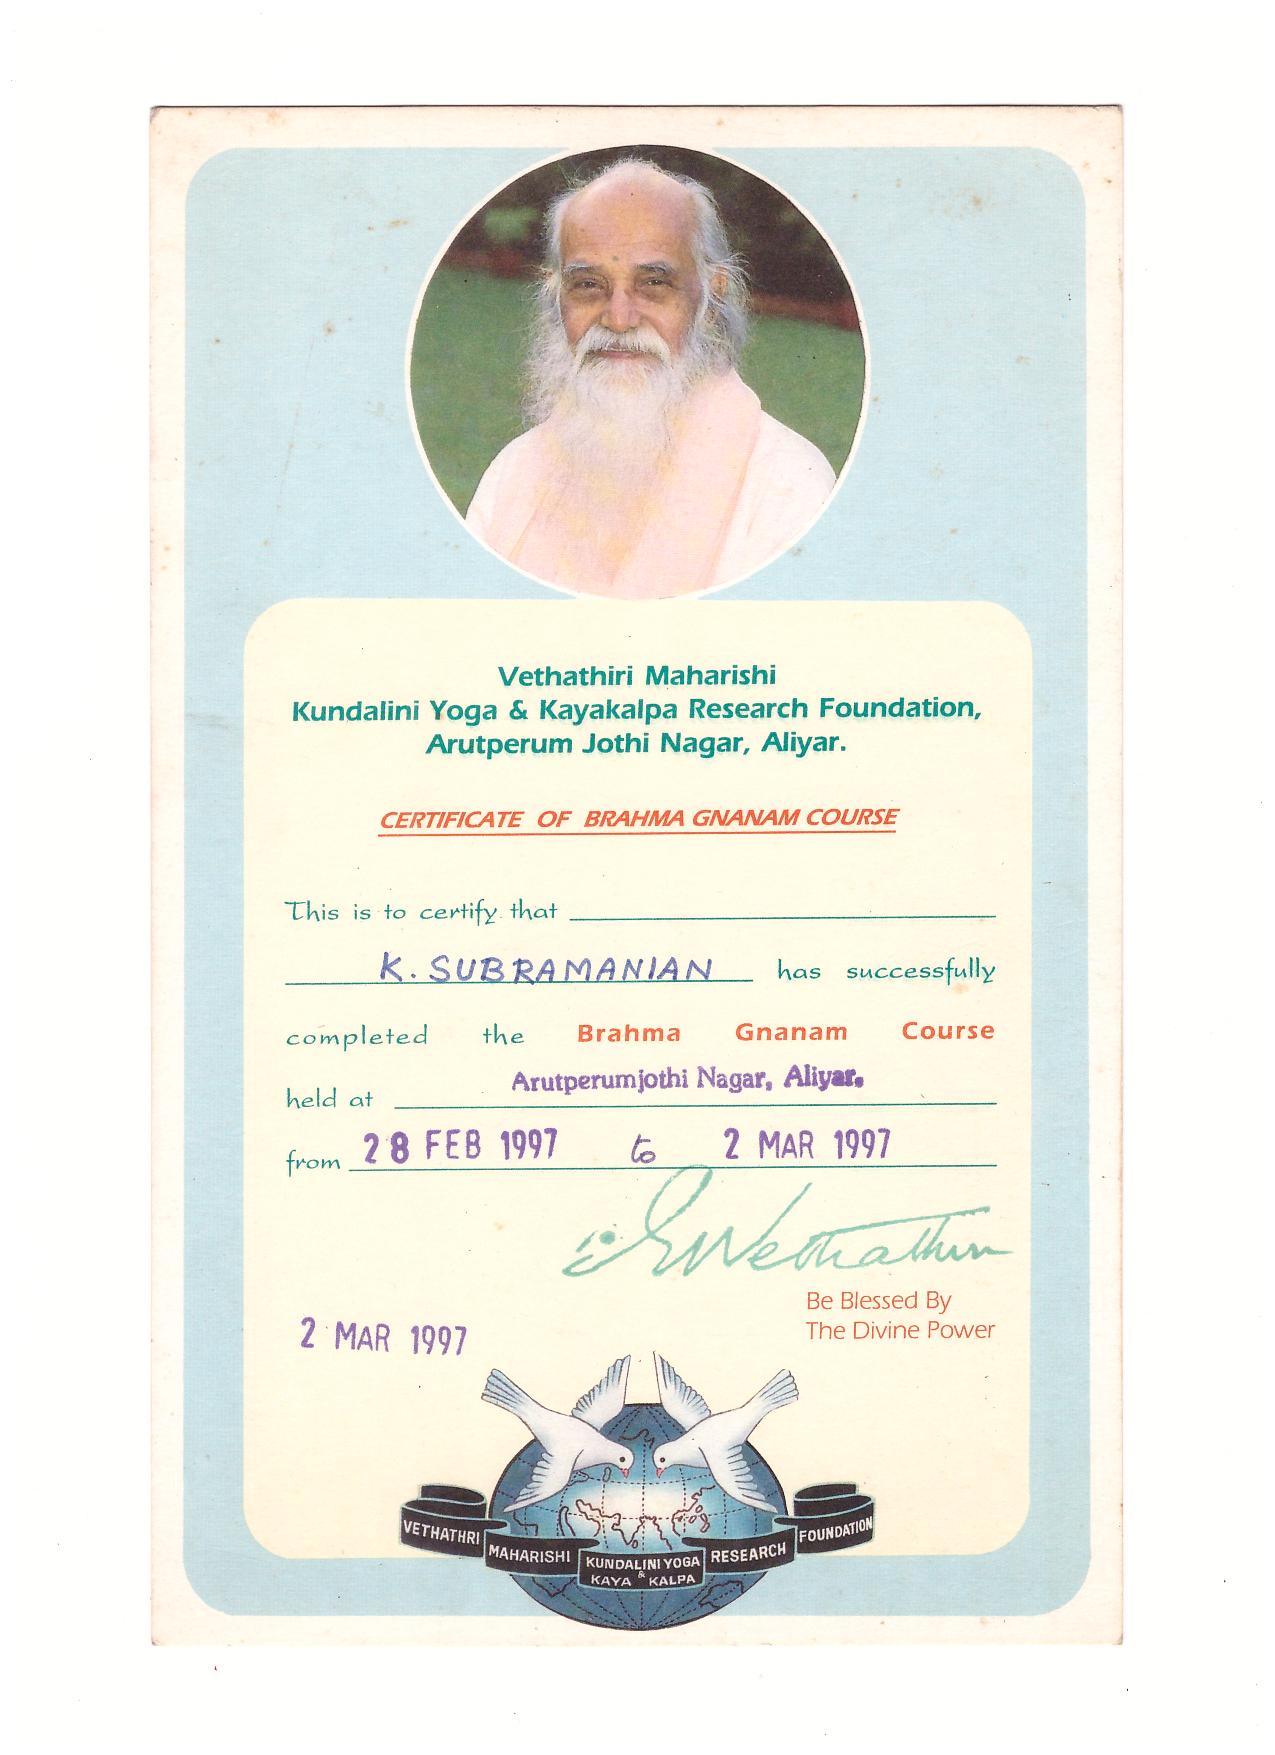 Vethathiri Maharishi
Kundalini Yoga & Kayakalpa Research Foundation,
Arutperum Jothi Nagar, Aliyar.
CERTIFICATE OF BRAHMA GNANAM COURSE
This is to certify that
K. SUBRAMANIAN has successfully
completed the Brahma Gnanam Course
Arutperumjothi Nagar, Aliyar.
held at
from 28 FEB 1997 to 2 MAR 1997
Vethathiri
Be Blessed By
The Divine Power
2 MAR 1997
VETHATHRI MAHARISHI KUNDALINI YOGA RESEARCH FOUNDATION
& 
KAYA KALPA